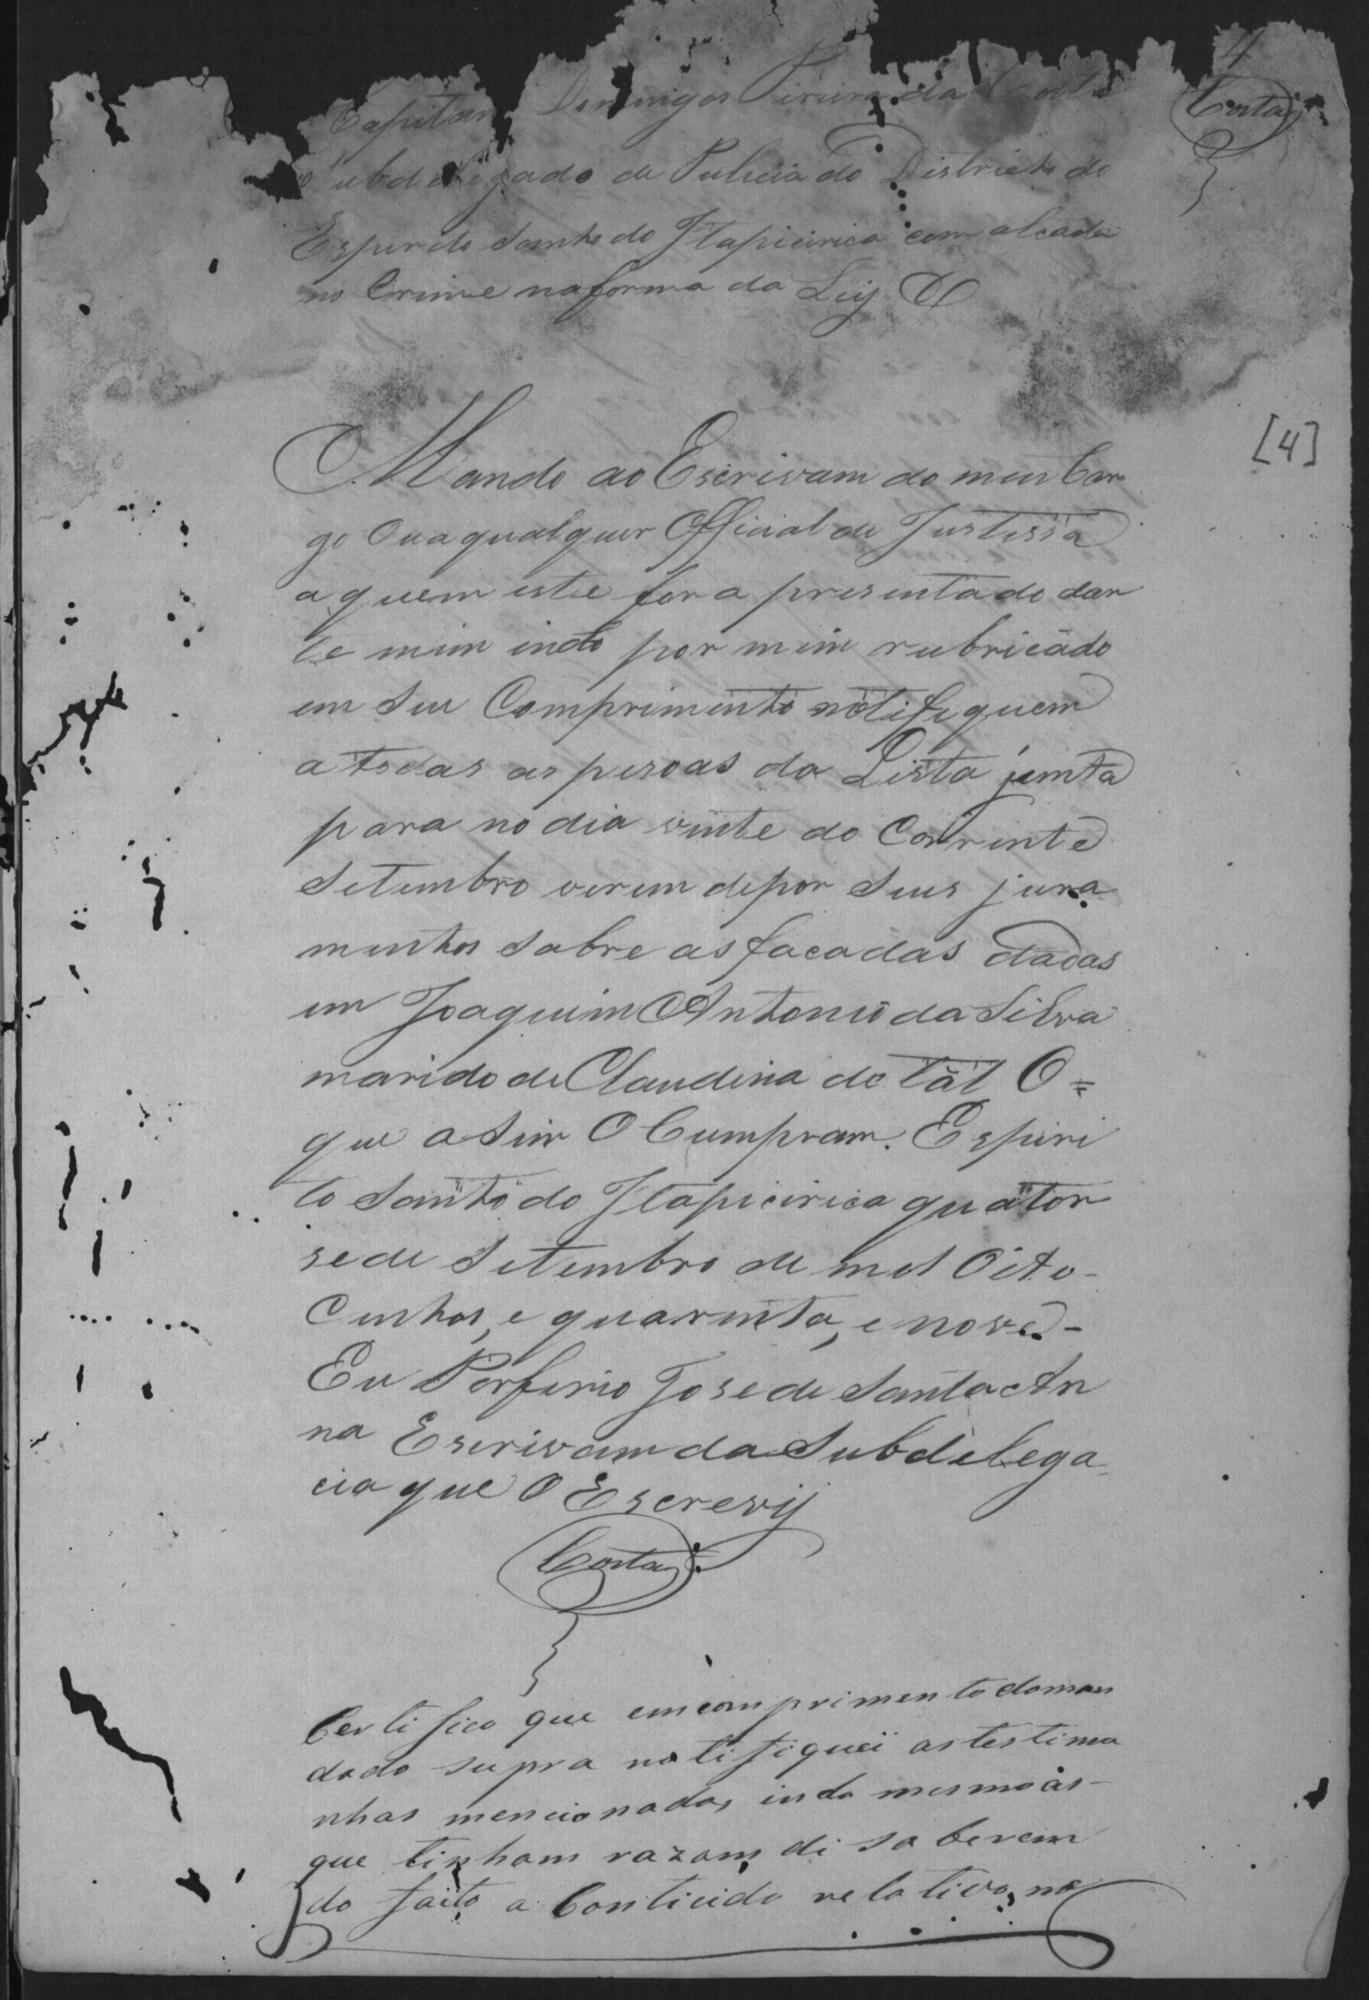 4
Costa
Capitam Domingos Pireira da Costa
Subdelegado de Pulicia do Districto do
Espirito Santo do Itapicirica com alcada
no Crime na forma da Ley &
[4]
Mando ao Escrivam do meu Car
go Ou a qualquer Official de Justissa
a quem este for a presentado dan
te mim indo por mim rubricado
em seu Comprimento notifiquem
a todas as pesoas da Lista junta
para no dia vinte do Corrente
Setembro virem depor seus jura
mentos sobre as facadas dadas
em Joaquim Antonio da Silva
marido de Claudina de tal O=
que asim O Cumpram. Espiri
to Santo do Itapicirica quator
se de Setembro de mil Oito-
Centos, e quarenta, e nove-
Eu Porfirio Jose de Santa An
na Escrivam da Subdelega
cia que O Escrevij
Costa
Certifico que em comprimento do man
dado supra notifiquei as testimu
nhas mencionadas, inda mesmo as-
que tinham razam di saberem
do faito a Conticido relativo, no